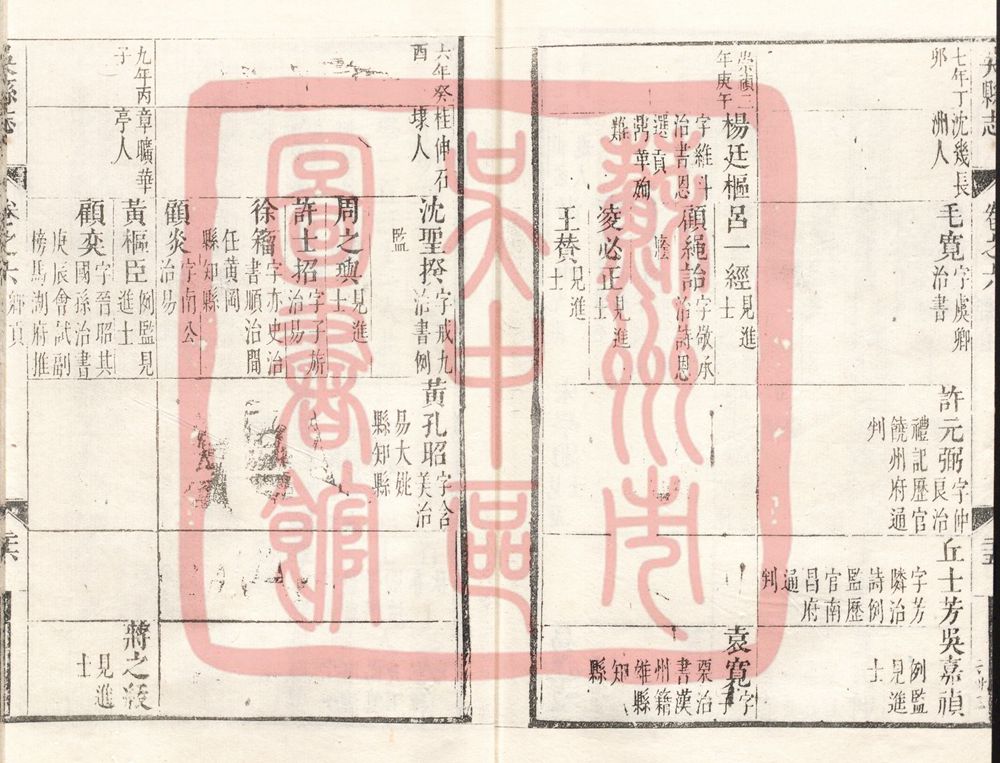 吳縣志
卷之六
七年丁卯
沈幾長洲人
毛寬字虞卿治書
許元弼字仲良治禮記歷官饒州府通判
丘士芳字芳隣治詩例監歷官南昌府通判
吳嘉禎例監見進士
崇禎二年庚午
楊廷樞字維斗治書恩選貢
呂一經見進士
顧繩詒字敬承治詩恩
凌必正見進士
王賛見進士
袁寬字子栗治書漢州籍雒縣知縣
六年癸酉
桂伸石埭人
沈聖揆字戒九治書例監
黃孔昭字含美治易大姚縣知縣
周之璵見進士
許士招字子旂治易
徐籀字亦史治書順治間任黃岡縣知縣
顧炎字南公治易
九年丙子
章曠華亭人
黃樞臣例監見進士
顧奕字晉昭其國孫治書庚辰會試副榜馬湖府推
蔣之
見進士
吳縣志
卷之六
鄉貢
蘇州市吳中區圖書館